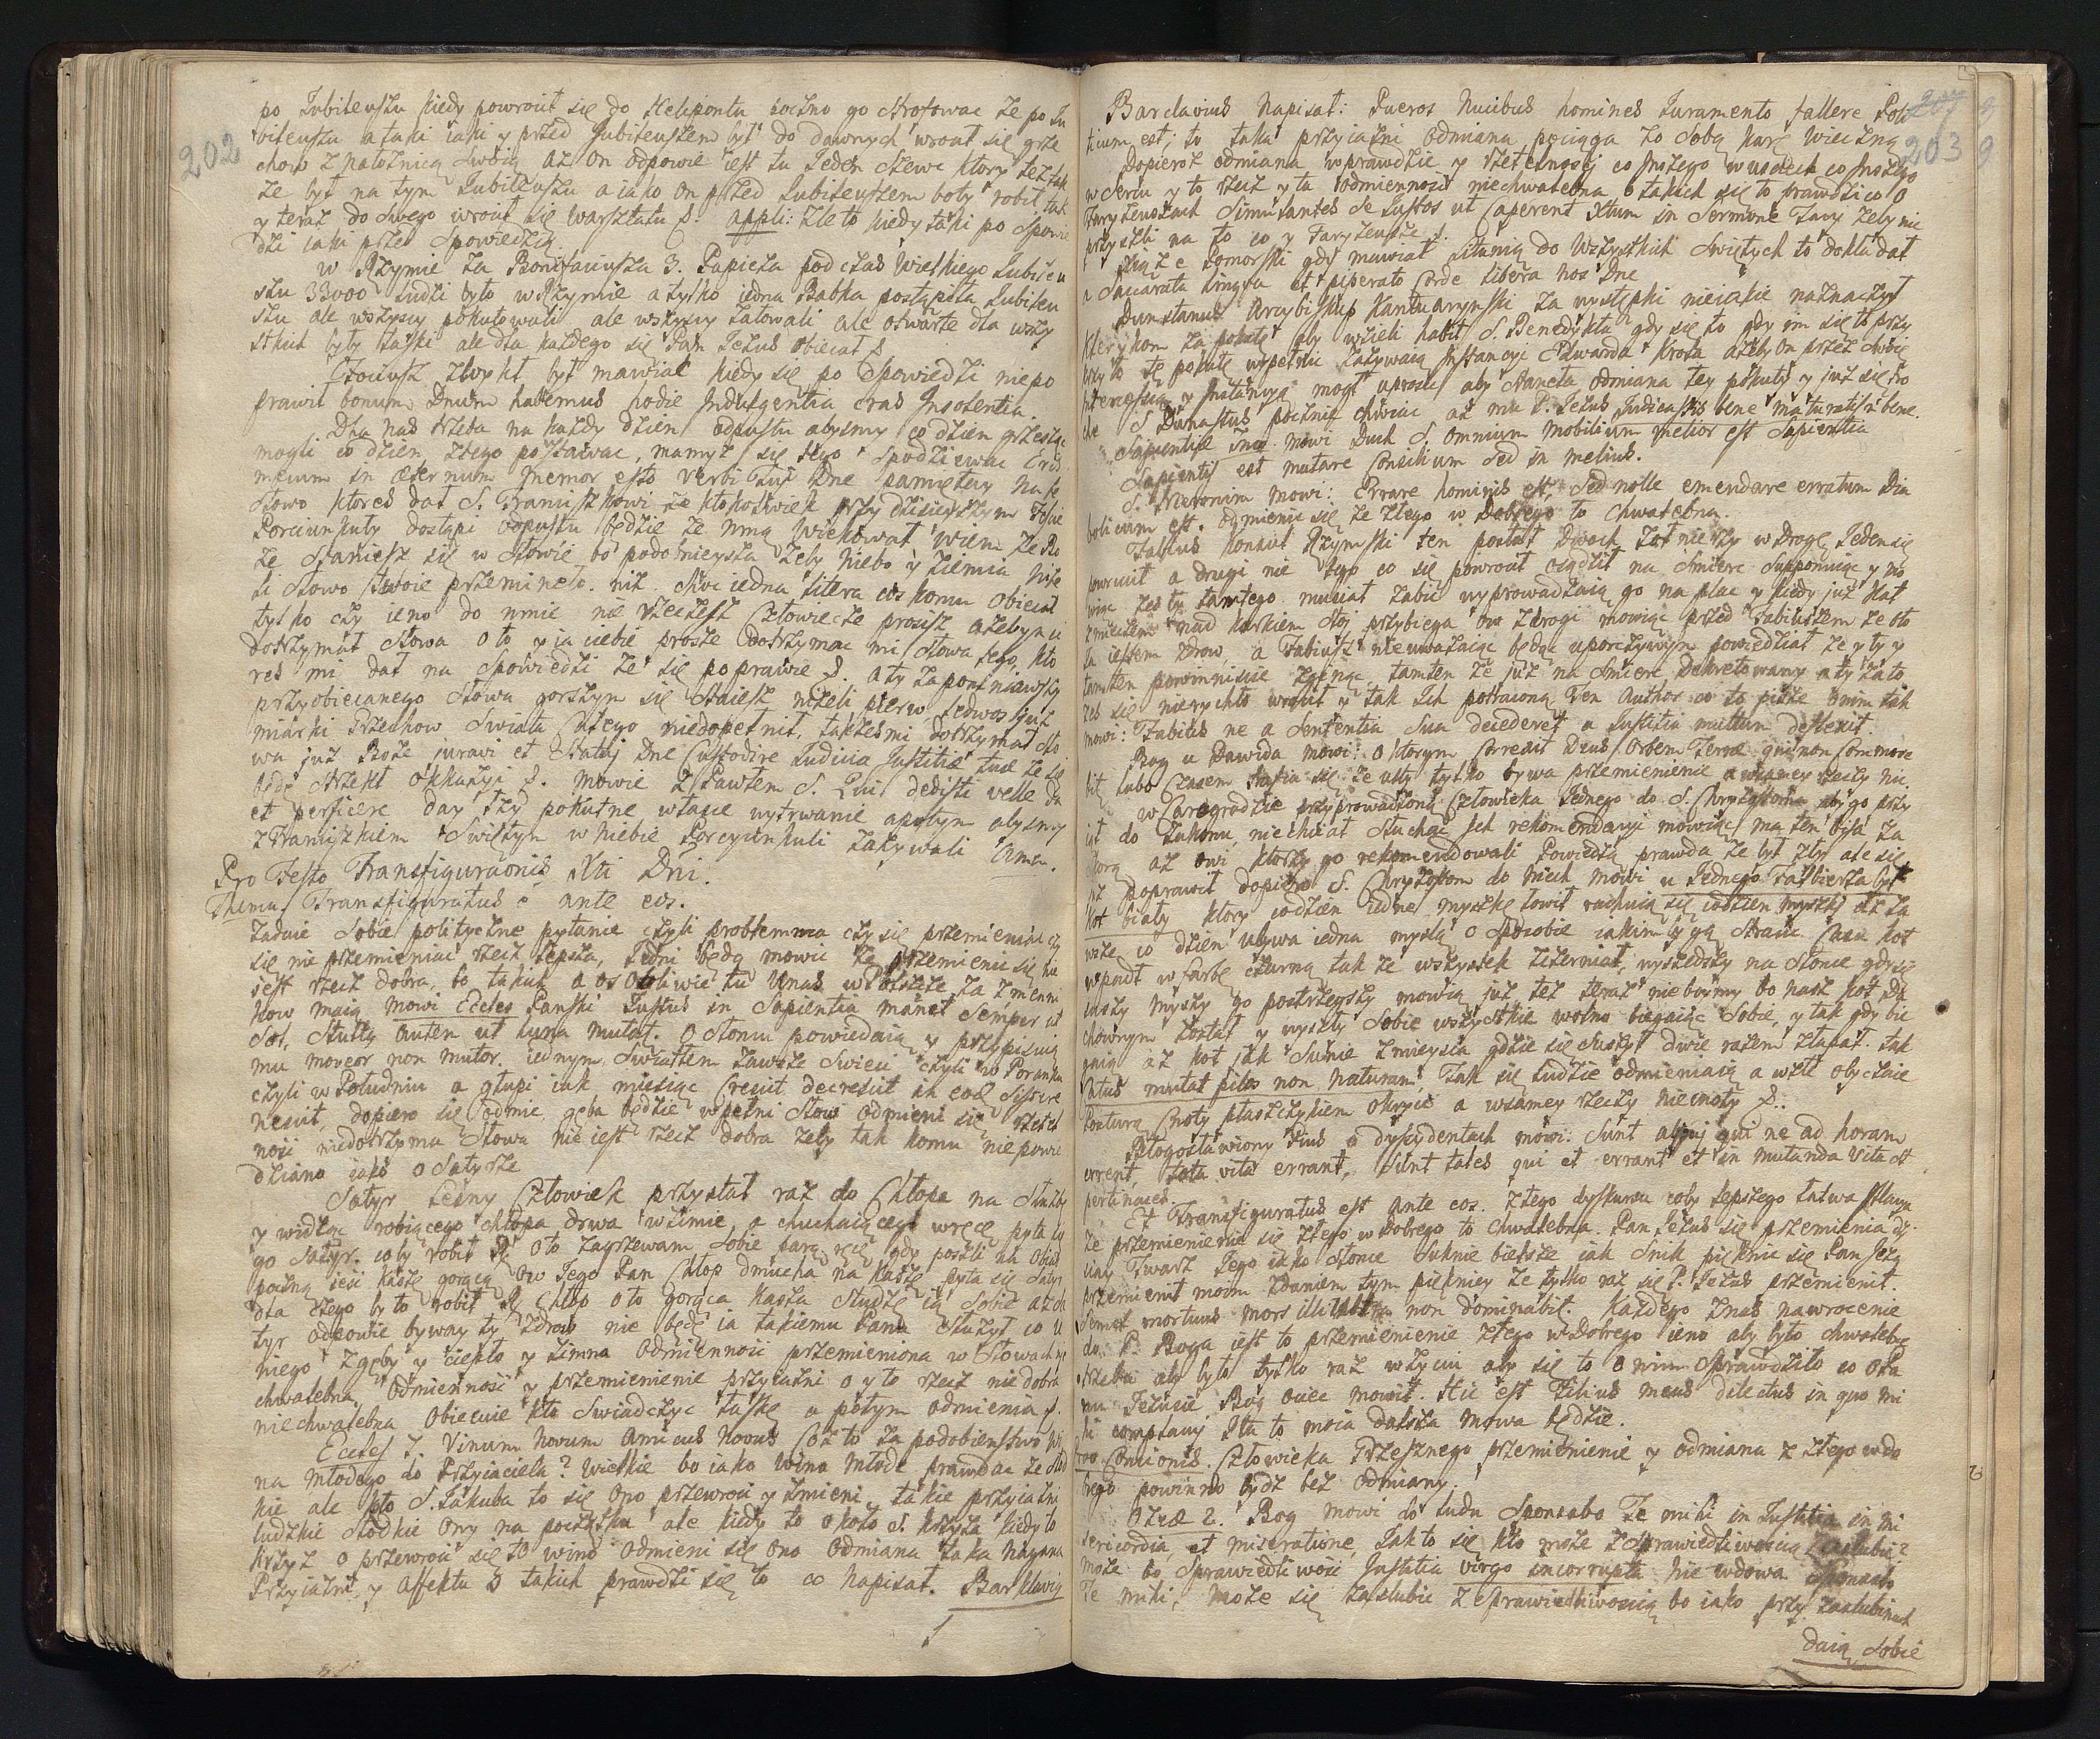 202
po Jubileuszu kiedy powrocił się do Heleponta poczno go strofowac że po Ju
bileuszu a taki iaki y przed Jubileuszem był do dawnych wrocił się grze
chow z nałożnicą swoią aż on odpowie iest tu Jeden szewc ktory też tak
że był na tym Jubileuszu a iako on przed Jubileuszem boty robił tak
y teraz do swego wrocił się warsztatu appli: zle to kiedy taki po spowie
dzi iaki przed spowiedzią.
W Rzymie za Bonifaciusza 3. Papieża pod czas wielkiego Jubileu
szu 33000 ludzi było w Rzymie a tylko iedna Babka postąpiła Jubileu
szu ale wszyscy pokutowali ale wszyscy żałowali ale otwarte dla wszy
stkich były łaski ale dla każdego się Pan Jezus obiecał
zwykł był mawiać kiedy się po spowiedzi niepo
prawił bonum Dnum habemus hodie Indulgentia cras Insolentia.
Dla nas trzeba na każdy dzien odpustu abysmy co dzien grzeszyc
mogli co dzien, złego się tego spodziewac
meum in æternum memor esto verbi Tui Dne pamiętay na te
słowo ktores dał S. Franciszkowi że ktokolwiek przy dzisieyszym Feście
Porciunkuly dostąpi odpustu będzie ze mną wiekował wiem że Bo
że staniesz się w słowie bo podobnieysza żeby niebo y ziemia niże
li słowo twoie przeminęło. niż iedna litera cos komu obiecał
tylko czy ieno do mnie nie rzeczesz człowiecze prosisz ażebym ci
dotrzymał słowa oto y ia ciebie proszę dotrzymac mi słowa tego, kto
res mi dał na spowiedzi że się poprawię
przyobiecanego słowa gorszym się staiesz niżeli pierw
miarki Grzechow swiata niedopełnił, dotrzymał sło
wa już Boże juravi et statui Dne Custodire Judicia Justitiæ tuæ że się
będę strzekł okkazyi. mowię z Pawłem S. Qui dedisti velle da
et perficere day łzy pokutne wytrwanie abysmy
z Franciszkiem Swiętym w niebie Porcyunkuli zażywali Amen.
Pro Festo Transfiguraonis Xti Dni.
Thema Transfiguratus e ante eos.
Zadaię sobie polityczne pytanie czyli problemma czy się przemieniac czy
się nie przemieniac rzecz lepsza, Jedni będą mowic że przemienic się nie
iest rzecz dobra, bo takich a osobliwie tu Unas w Polszcze za zmienni
kow maią mowi Eccles Panski Justus in sapientia manet semper ut
Sol, stultus autem ut luna mutat. O słoncu powiedaią y przypisuią
mu moveor non mutor. iednym swiatłem zawsze swieci czyli w Poranku
czyli w Południu a głupi iak miesiąc crescit decrescit in eod sistere
nescit, dopiero się odmie gęba będzie w pełni słow odmieni się rzetel
nosci niedotrzyma słowa nie iest rzecz dobra żeby tak komu niepowie
dziano iako o Satyrze
Satyr Lesny człowiek przystał raz do chłopa na służbę
y widząc robiącego chłopa drwa w zimie, a chuchaiącego w ręce pyta się
go Satyr. coby robił R Oto zagrzewam sobie parą ręce gdy poszli na obiad
poczną ieść kaszę gorącą Ow Jego Pan chłop dmucha na kaszę, pyta się Satyr
dla czego by to robił R chłop oto gorąca kasza studzę ią sobie aż Sa
tyr odpowie byway ty zdrow nie będę ia takiemu Panu służył co u
niego z gęby y ciepło y zimna odmiennosc przemieniona w słowach nie
chwalebna, odmiennosc y przemienienie przyiazni o y to rzecz niedobra
niechwalebna obiecuie kto swiadczyc łaskę a potym odmienia
Eccles 9. Vinum novum amicus novus Coż to za podobienstwo wi
na młodego do Przyiaciela? Wielkie bo iako wino młode prawda że słod
kie ale koło S. Jakuba to się ono przewroci y zmieni, takie przyiazni
ludzkie słodkie ony na początku ale kiedy to około S. krzyża kiedy to
krzyż o przewroci się to wino odmieni się ona odmiana taka nagana
Przyiazni y Affektu o takich prawdzi się to co napisał. Barklaviu
203
Barclavius napisał: Pueros nucibus homines Juramento fallere Poli
ticum est, to taka przyiazni odmiana pociąga za sobą karę wieczną
Dopieroż odmiana w prawdzie y rzetelnosci co inszego w usciech co inszego
w sercu y to rzecz y ta odmiennosc niechwalebna o takich się to prawdzi co o
Faryzeuszach Simulantes se Justos ut caperent Xtum in Sermone Zaś żeby nie
przyszli na to co y Faryzeusze
Xiąże Pomorski gdy mawiał Litanią do Wszystkich Swiętych to dokładał
a Saccarata lingua et piperato Corde libera nos Dne
Dunstanus Arcybiskup Kantuaryinski za występki nieiakie naznaczył
klerykom za pokutę aby wzieli habit S. Benedykta gdy się to gdy im się to przy
krzyło te pokutę wypełnic zażywaią Instancyi Edwarda krola ażeby on przez swoię
intercessią y Instancyą mogł uprosić aby stanęła odmiana tey pokuty y już się kło
nił S Dunastus poczną chwiac aż mu P. Jezus Judicastis bene mutaretis n bene.
Sapientiæ mowi Duch S. omnium mobilium melior est sapientia
Sapientis est mutare Consilium sed in melius.
S. Hieronim mowi: Errare hominis est, sed nolle emendare erratum Dia
bolicum est. odmienic się ze złego w Dobrego to chwalebna.
Fabius konsul Rzymski ten posłał Dwoch żołnierzy w Drogę, Jeden się
powrocił a drugi nie tego co się powrocił osądził na smierc Supponuiąc y mo
wiąc żes ty tamtego musiał zabic wyprowadzaią go na plac y kiedy już kat
z mieczem nad karkiem stoj przybiega ow z drogi mowiąc przed Fabiuszem że oto
ia iestem zdrow, a Fabiusz nie uważaiąc będąc uporczywym powiedział że y ty y
tamten powinniscie zginąc, tamten że już na smierc Dekretowany a ty za to
żes się nierychło wrocił y tak ich potracono Ten Author co to pisze o nim tak
mowi: Fabius ne a Sententia Sua decederet a Justitia multum deflexit.
Bog u Dawida mowi: o ktorym Correxit Deus Orbem Terræ qui non Commove
bit, lubo Czasem trafia się że uty tylko bywa przemienienie a w samey rzeczy nie.
W Carogrodzie przyprowadzono człowieka Jednego do S. Chryzostoma aby go przy
iął do Zakonu, niechciał słuchac ich rekomendacyi mowiąc ma ten lisią za
skorą aż owi ktorzy go rekomendowali Powiedzą prawda że był zły ale się
już poprawił dopiero S. Chryzostom do niech mowi u Jednego Farbierza był
kot biały ktory codzien iedne myszkę łowił rachuią się codzien myszki aż za
wsze co dzien ubywa iedna myslą o sposobie iakim by się strzec Czasem kot
wpadł w farbę czarną tak że wszystek zczerniał, wyszedszy na słonce gdy się
suszy myszy go postrzegszy mowią już też teraz nieboymy bo nasz kot Du
chownym został y wyszły sobie wszystkie wolno biegaiąc sobie, y tak gdy bie
gaią aż kot jak sunie z mieysca gdzie się suszył dwie razem złapał. tak
Catus mutat pilos non naturam. Tak się ludzie odmieniaią a wszel obyczaie
Cnoty płaszczykiem okryie a w samey rzeczy niecnoty
Błogosławiony Pius o dyssydentach mowi: Sunt aliqui qui ne ad horam
errent, tota vita errant, sunt tales qui et errant et in mutanda vita st
pertinaces
Et Transfiguratus est ante eos. Z tego dyskursu coby lepszego łatwa
że przemienienie się złego w Dobrego to chwalebna. Pan Jezus się przemienia
Twarz Jego iako słonce suknie bielsze iak snieg pięknie się Pan Jezus
przemienił moim zdaniem tym pięknicy że tylko raz się P. Jezus przemienił.
Semel mortuus mors illi ultra non dominabit. Każdego z nas nawrocenie
do P. Boga iest to przemienienie złego w Dobrego ieno aby było chwalebne
trzeba aby było tylko raz w życiu aby się to o nim sprawdziło co o Pa
nu Jezusie Bog ociec mowił. Hic est Filius meus dilectus in quo mi
hi complacui Ita to moia dalsza mowa będzie.
Pro Concionis. Człowieka Grzesznego przemienienie y odmiana z złego w do
brego powinno bydź bez odmiany.
Ozeæ 2. Bog mowi do ludu Sponsabo Te mihi in Justitia in mi
sericordia, et miseratione, Jak to się kto może z Sprawiedliwoscią zaslubic?
może bo sprawiedliwosc Justitia virgo incorrupta nie wdowa Sponsabo
Te mihi, może się zaslubic z Sprawiedliwoscią bo iako przy zaslubinach
daią sobie